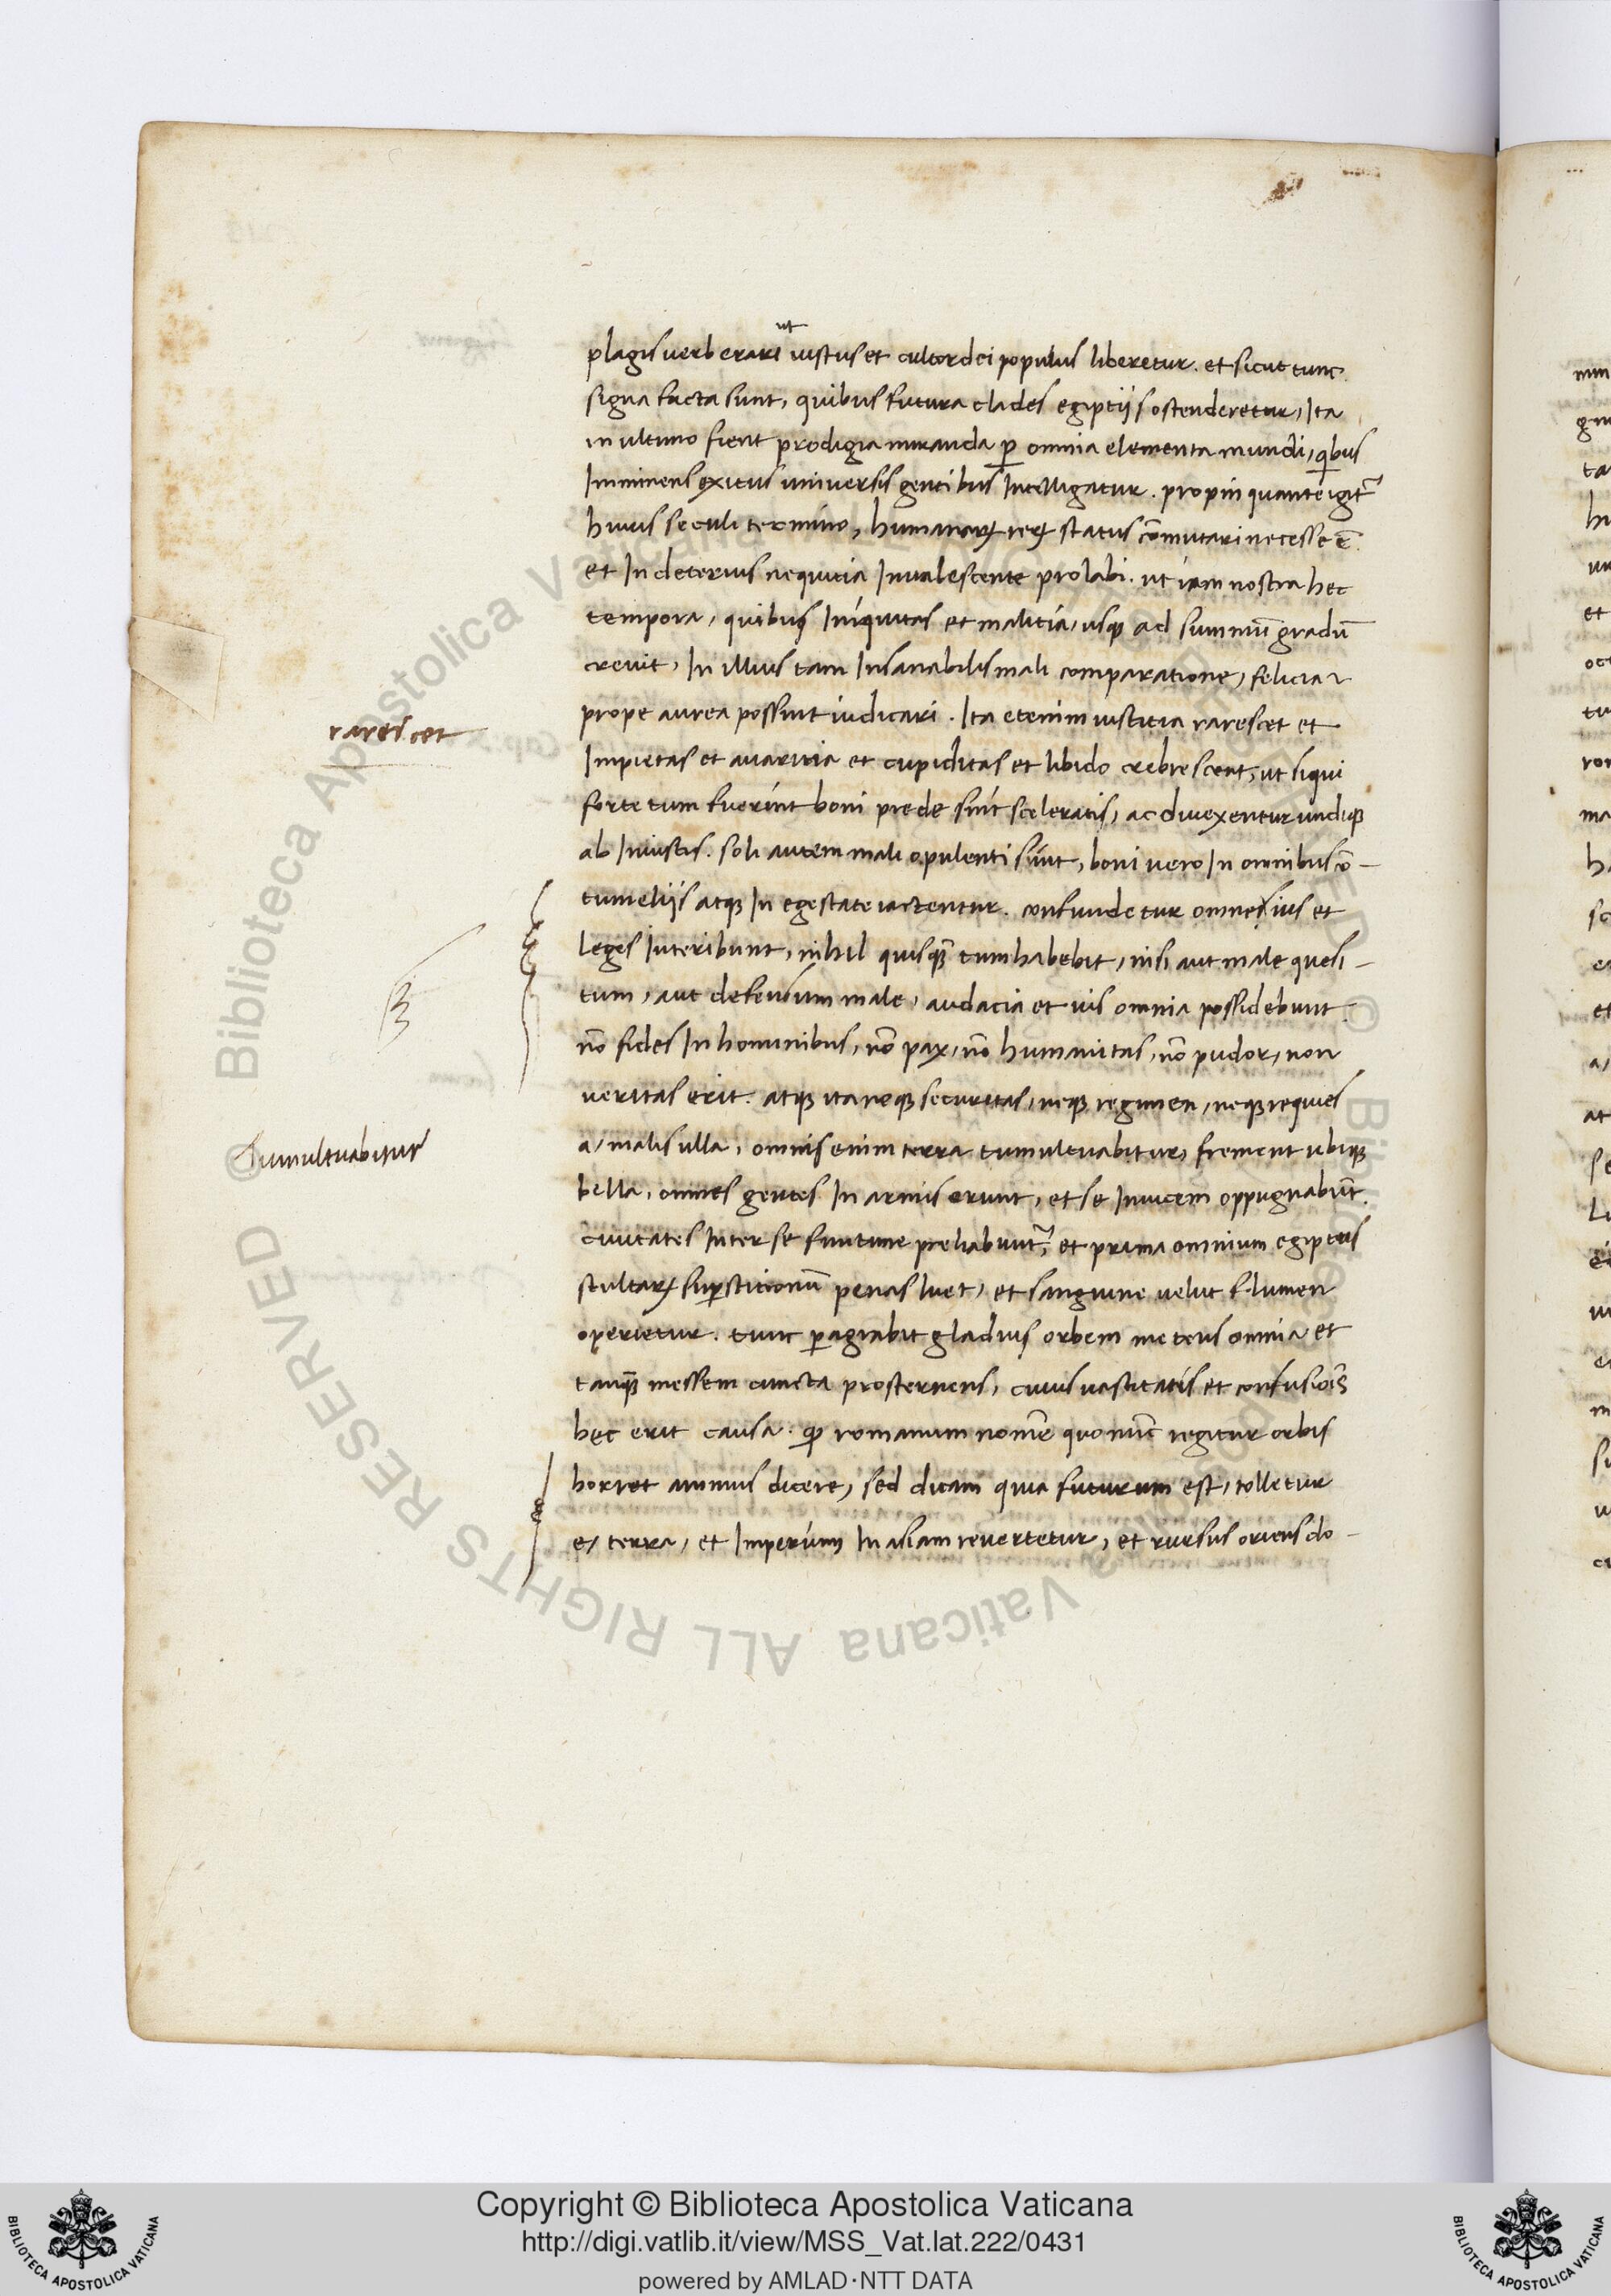 ut
plagis uerberari iustus et cultor dei populus liberetur. et sicut tunc
signa facta sunt, quibus futura clades egiptiis ostenderetur, Ita
in ultimo fient prodigia miranda ꝑ omnia elementa mundi, qibus
Imminens exitus uniuersis gentibus Intelligatur. propinquante igit᷑
huius seculi termino, humanaꝝ reꝝ status cōmutari necesse ē.
et In deterius nequitia Inualescente prolabi. ut iam nostra hec
tempora, quibus Iniquitas et malitia, usqꝫ ad summū gradū
creuit, In illius tam Insanabilis mali comparatione, felicia et
prope aurea possint iudicari. Ita etenim iustitia rarescet et
rarescet
Impietas et auaritia et cupiditas et libido crebrescent, ut siqui
forte tum fuerint boni prede sint sceleratis, ac diuexentur undiqꝫ
ab Iniustis. soli autem mali opulenti sint, boni uero In omnibus cō-
tumeliis atqꝫ In egestate iactentur. confundetur omne ius et
leges Interibunt, nihil quisqꝫ̄ tum habebit, nisi aut male quesi-
tum, aut defensum male, audacia et uis omnia possidebunt.
nō fides In hominibus, nō pax, nō humanitas, nō pudor, non
ueritas erit. atqꝫ ita neqꝫ securitas, neqꝫ regimen, neqꝫ requies
a, malis ulla, omnis enim terra tumultuabitur, frement ubiqꝫ
tumultuabitur
bella, omnes gentes In armis erunt, et se Inuicem oppugnabūt.
Ciuitates Inter se finitime preliabunt᷑, et prima omnium egiptus
stultaꝝ suꝑstitionū penas luet, et sanguine uelut flumen
operietur. tunc ꝑagrabit gladius orbem metens omnia et
tanqꝫ̄ messem cuncta prosternens, cuius uastitatis et confusiōis
hęc erit causa. ꝙ romanum nomē quo nūc regitur orbis
horret animus dicere, sed dicam quia futurum est, tolletur
e, terra, et Imperium In asiam reuertetur, et rursus oriens do-
© Biblioteca Apostolica Vaticana ALL RIGHTS RESERVED
Copyright © Biblioteca Apostolica Vaticana
http://digi.vatlib.it/view/MSS_Vat.lat.222/0431
powered by AMLAD·NTT DATA
BIBLIOTECA APOSTOLICA VATICANA
BIBLIOTECA APOSTOLICA VATICANA